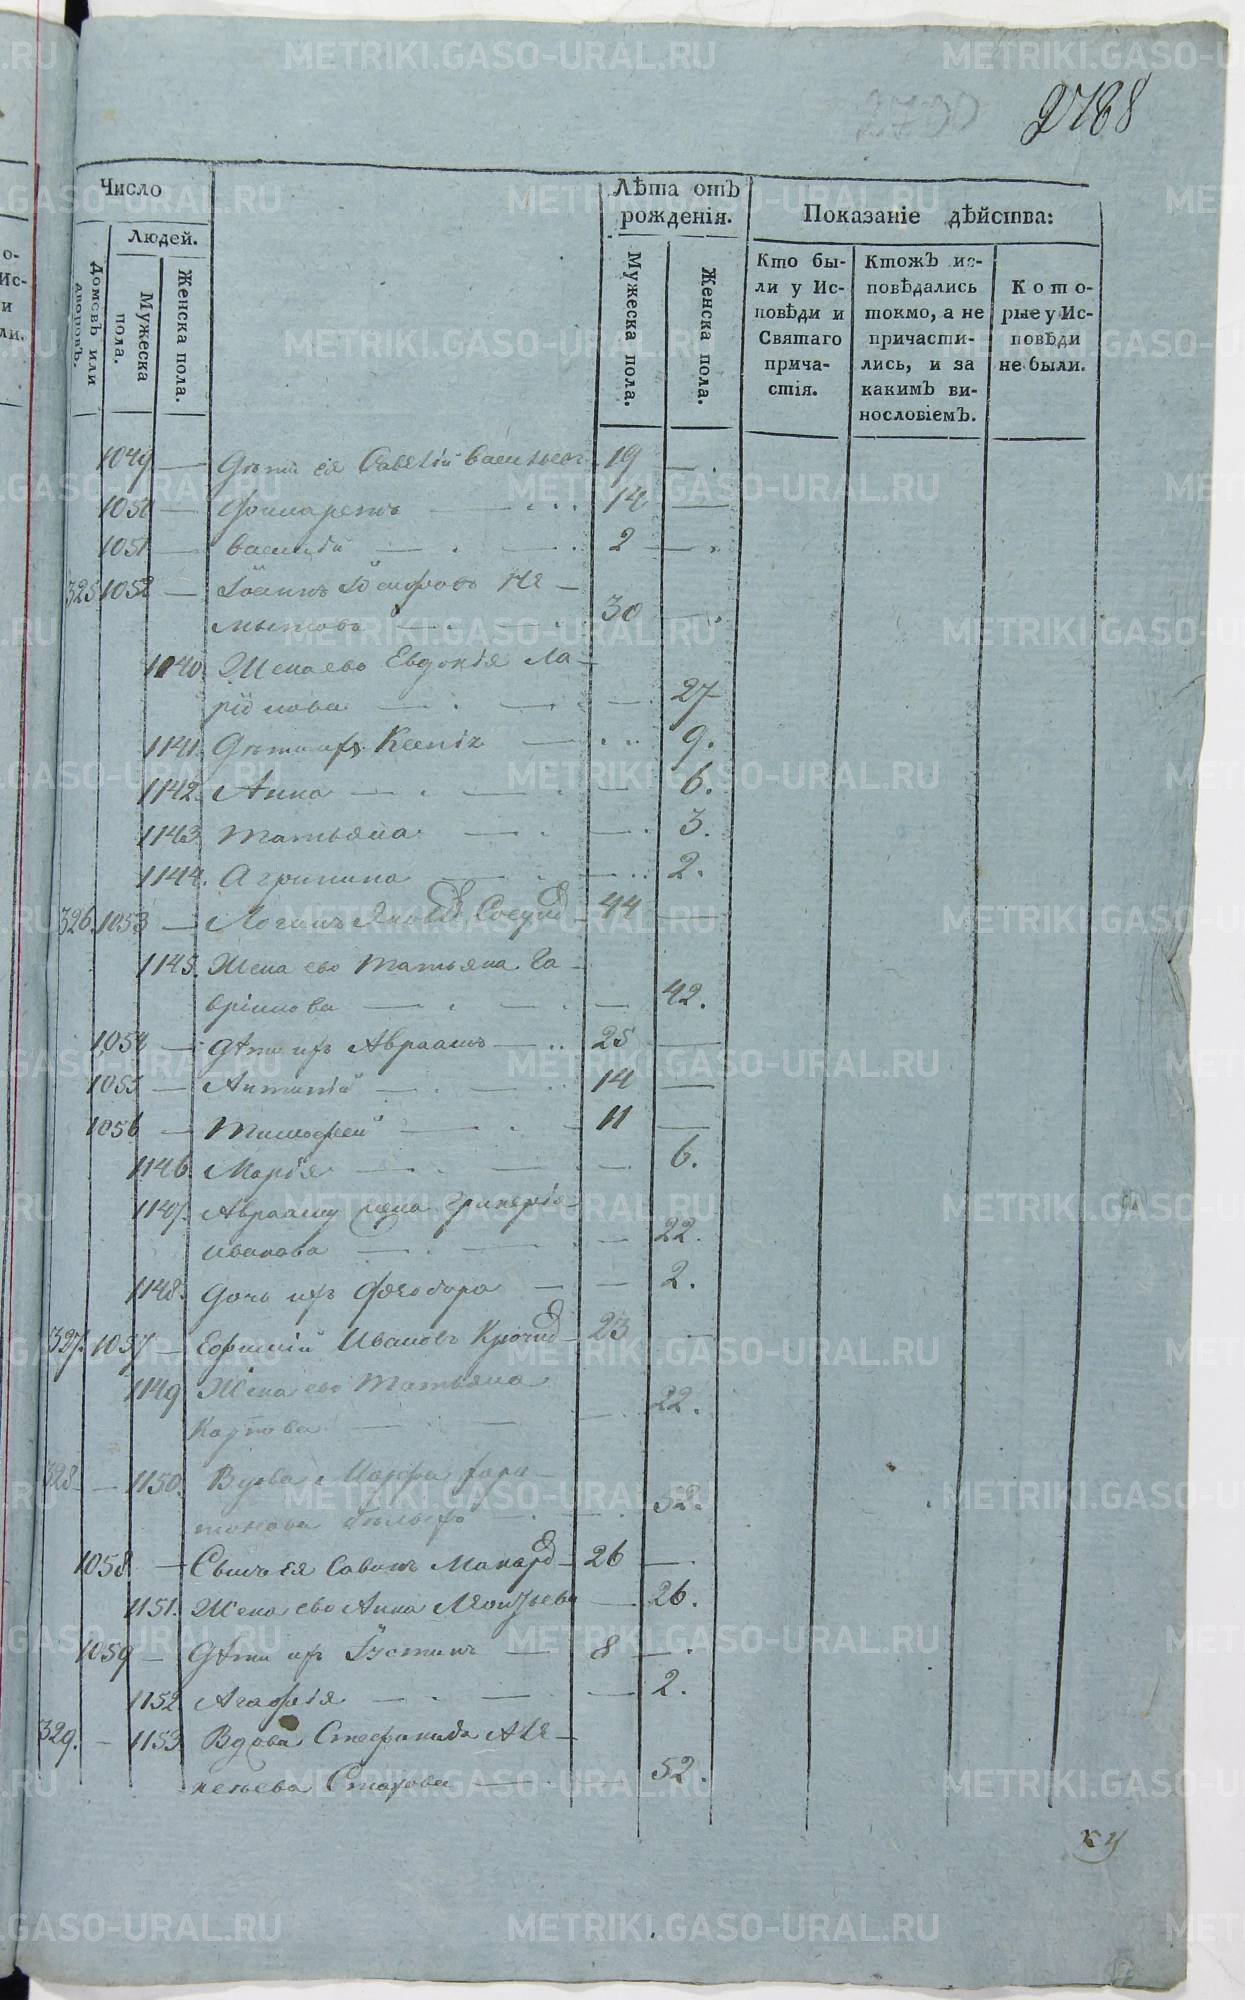 2788
Число
Людей.
Домовъ или дворовъ.
Мужеска пола.
Женска пола.
Лѣта отъ рожденія.
Мужеска пола.
Женска пола.
Показаніе дѣйства:
Кто были у Исповѣди и Святаго причастія.
Ктожъ исповѣдались токмо, а не причастились, и за какимъ винословіемъ.
Которые у Исповѣди не были.
1049 — Дѣти ея Савелій Васильевъ 19 —
1050 — Филаретъ — 14 —
1051 — Василій — 2 —
325 1052 — Іоаннъ Не-
мытовъ — 30 —
1140. Жена ево Евдокія Ла-
ріонова — 27
1141. Дѣти ихъ Ксенія — 9.
1142. Анна — 6.
1143 Татьяна — 3.
1144. Агрипина — 2.
326. 1053 — Логинъ Яковлев 44 —
1145. Жена ево Татьяна Га-
врілова — 42.
1054 — дѣти ихъ Авраамъ — 25 —
1055 — Антипій — 14 —
1056 — Тимофей — 11 —
1146. Марія — 6.
1147. Аврааму жена
Иванова — 22.
1148. Дочь ихъ Феодора — 2.
327. 1057 — Ефимій Ивановъ 23
1149 Жена ево Татьяна
Карпова — 22.
328 — 1150. Вдова Марфа Хари-
тонова — 52.
1058 — Сынъ ея Савинъ Макаров 26 —
1151. Жена ево Анна Леонтьева — 26.
1059 — Дѣти ихъ Іустинъ — 8 —
1152. Агафія — 2.
329. — 1153 Вдова Стефанида Але-
ксѣева — 52.